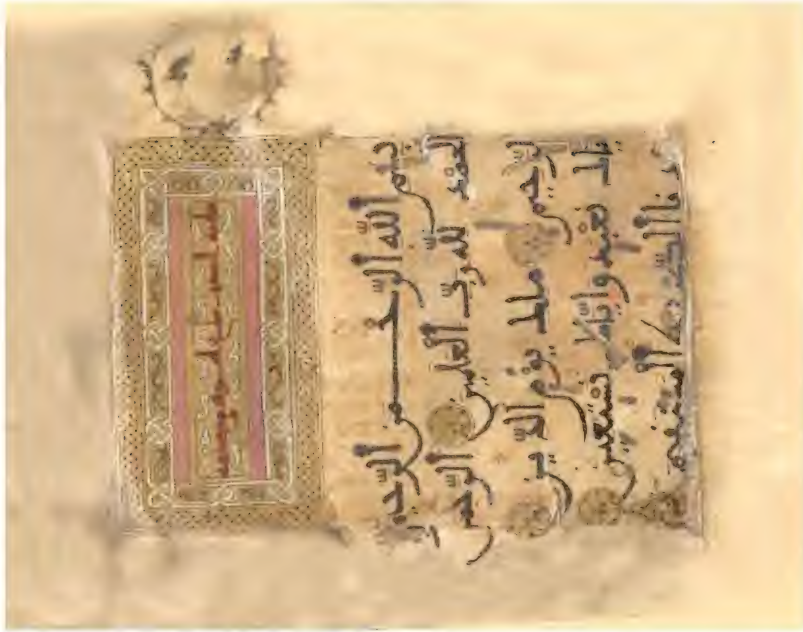 بسم الله الرحمن الرحيم
الحمد لله رب العلمين الرحمن
الرحيم ملك يوم الدين
إياك نعبد وإياك نستعين
اهدنا الصرط المستقيم